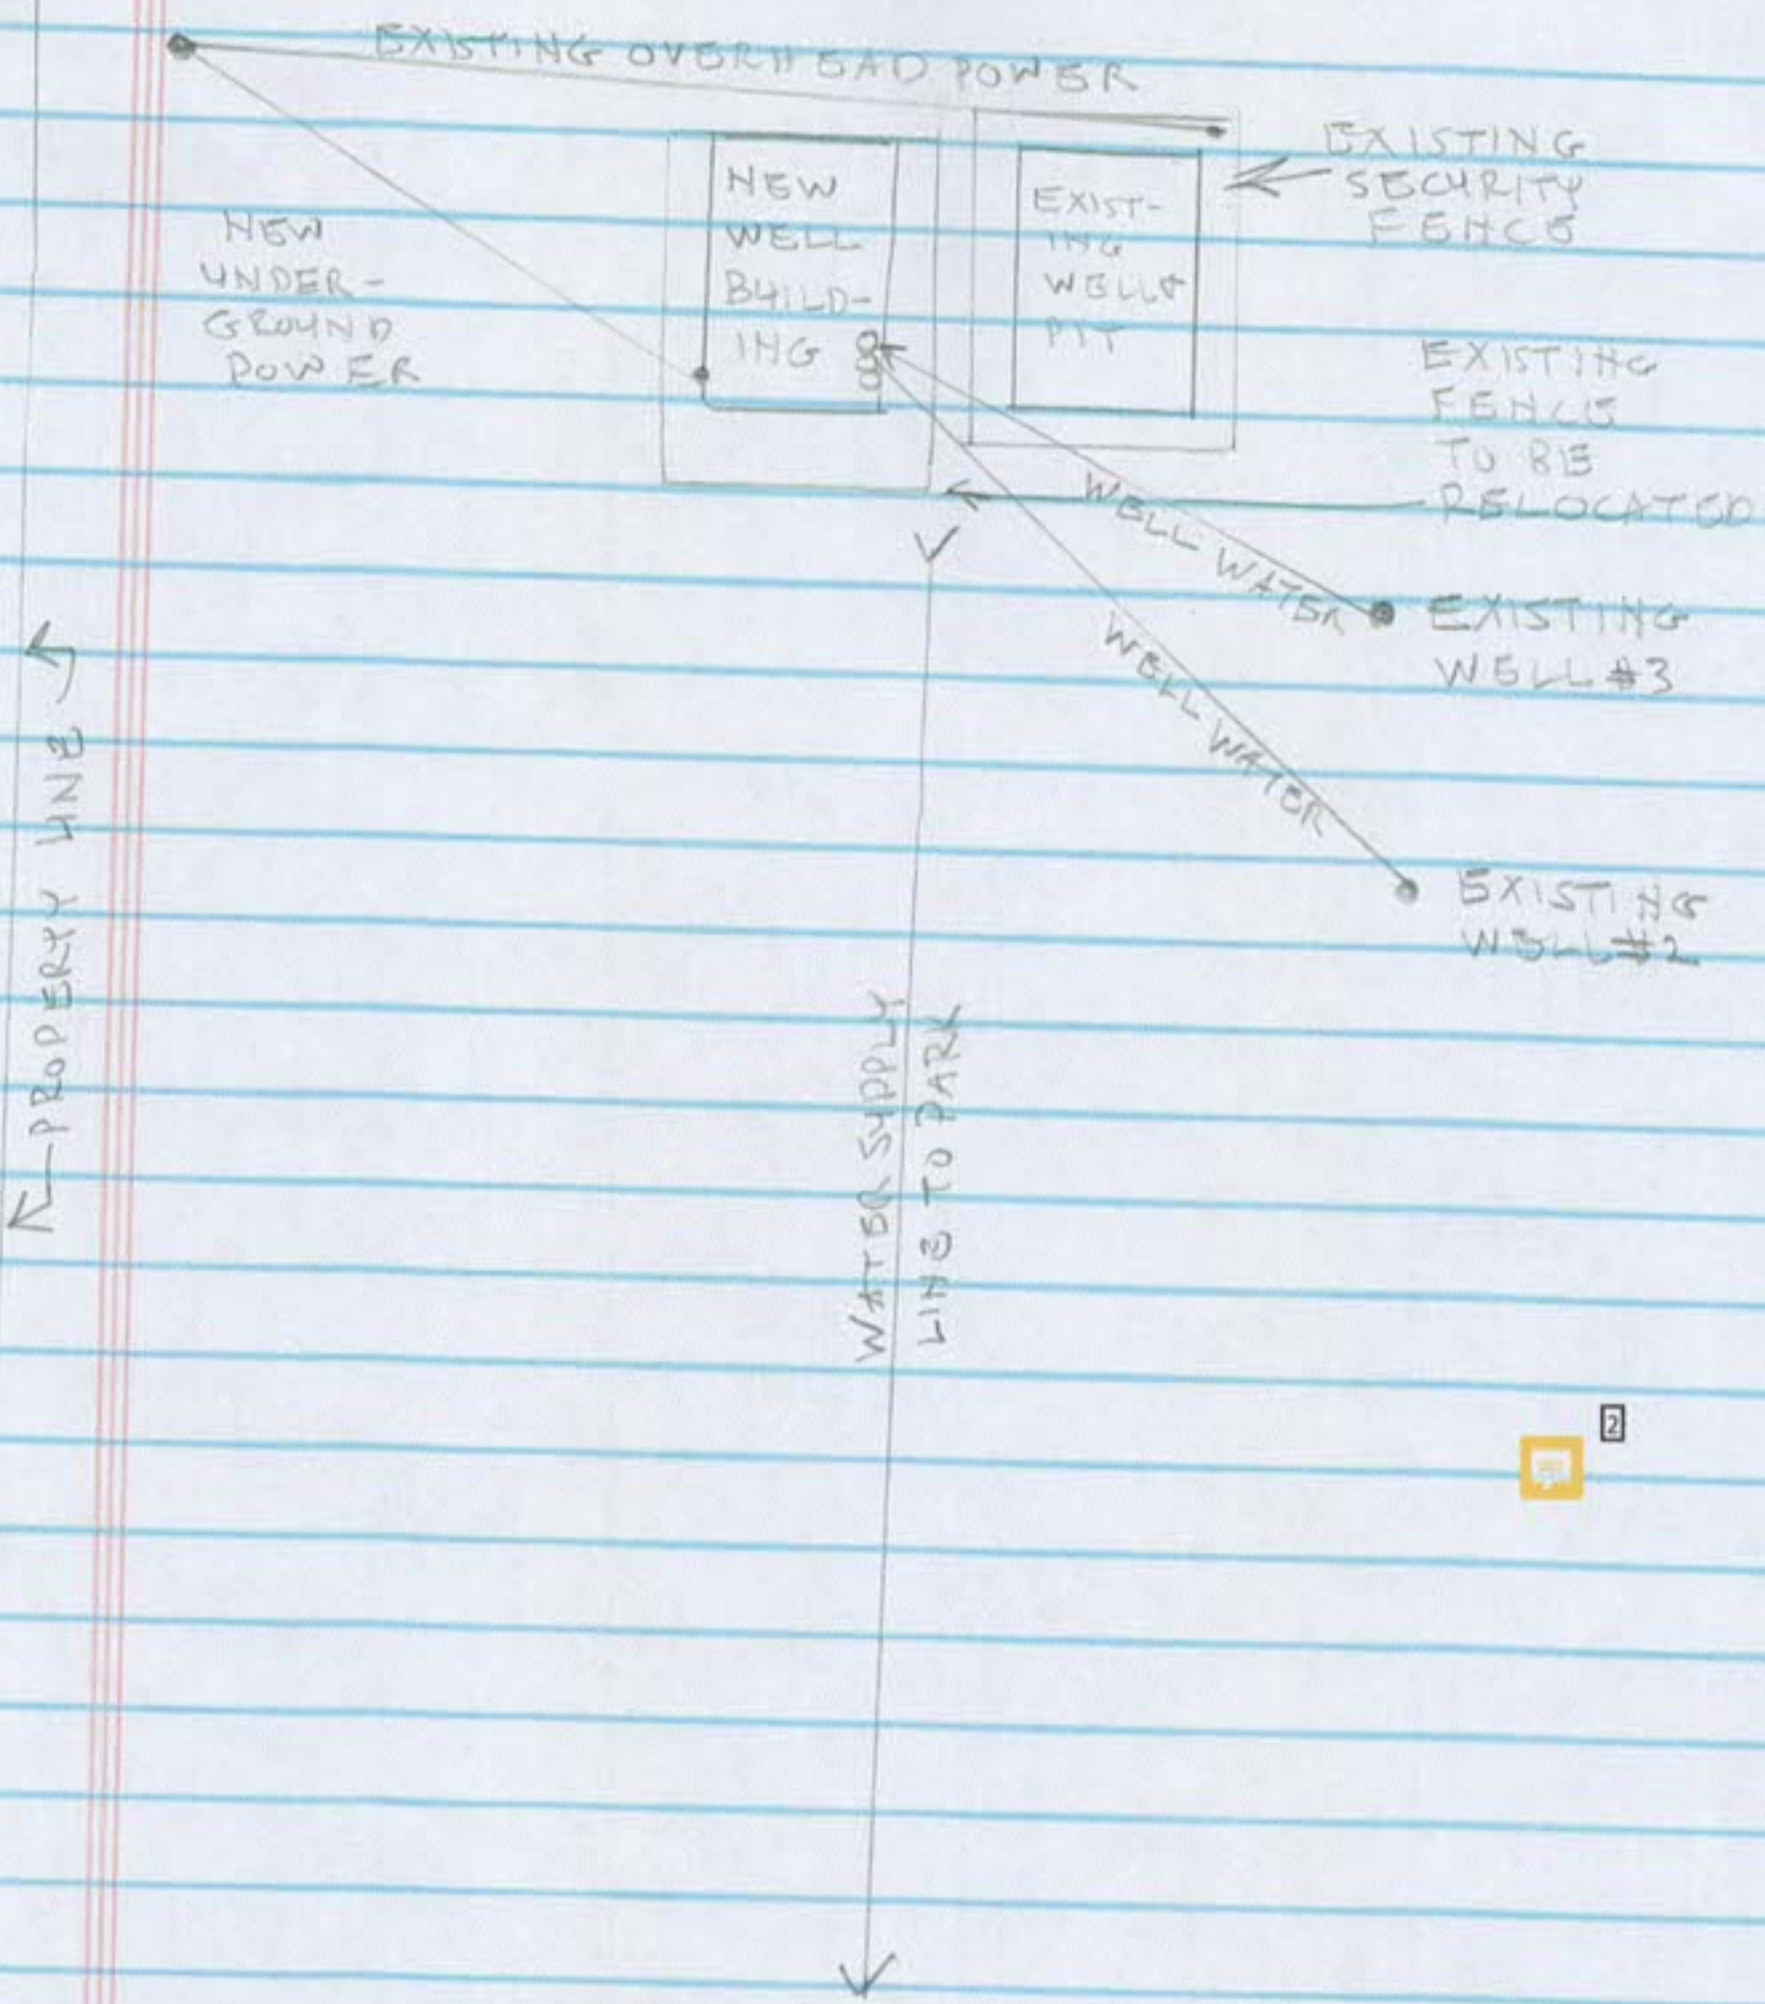 EXISTING OVERHEAD POWER
EXISTING
SECURITY
FENCE
NEW
WELL
BUILD-
ING
EXIST-
ING
WELL &
PIT
NEW
UNDER-
GROUND
POWER
EXISTING
FENCE
TO BE
RELOCATED
WELL WATER
EXISTING
WELL #3
WELL WATER
EXISTING
WELL #2
PROPERYY LINE
WATER SUPPLY
LINE TO PARK
2